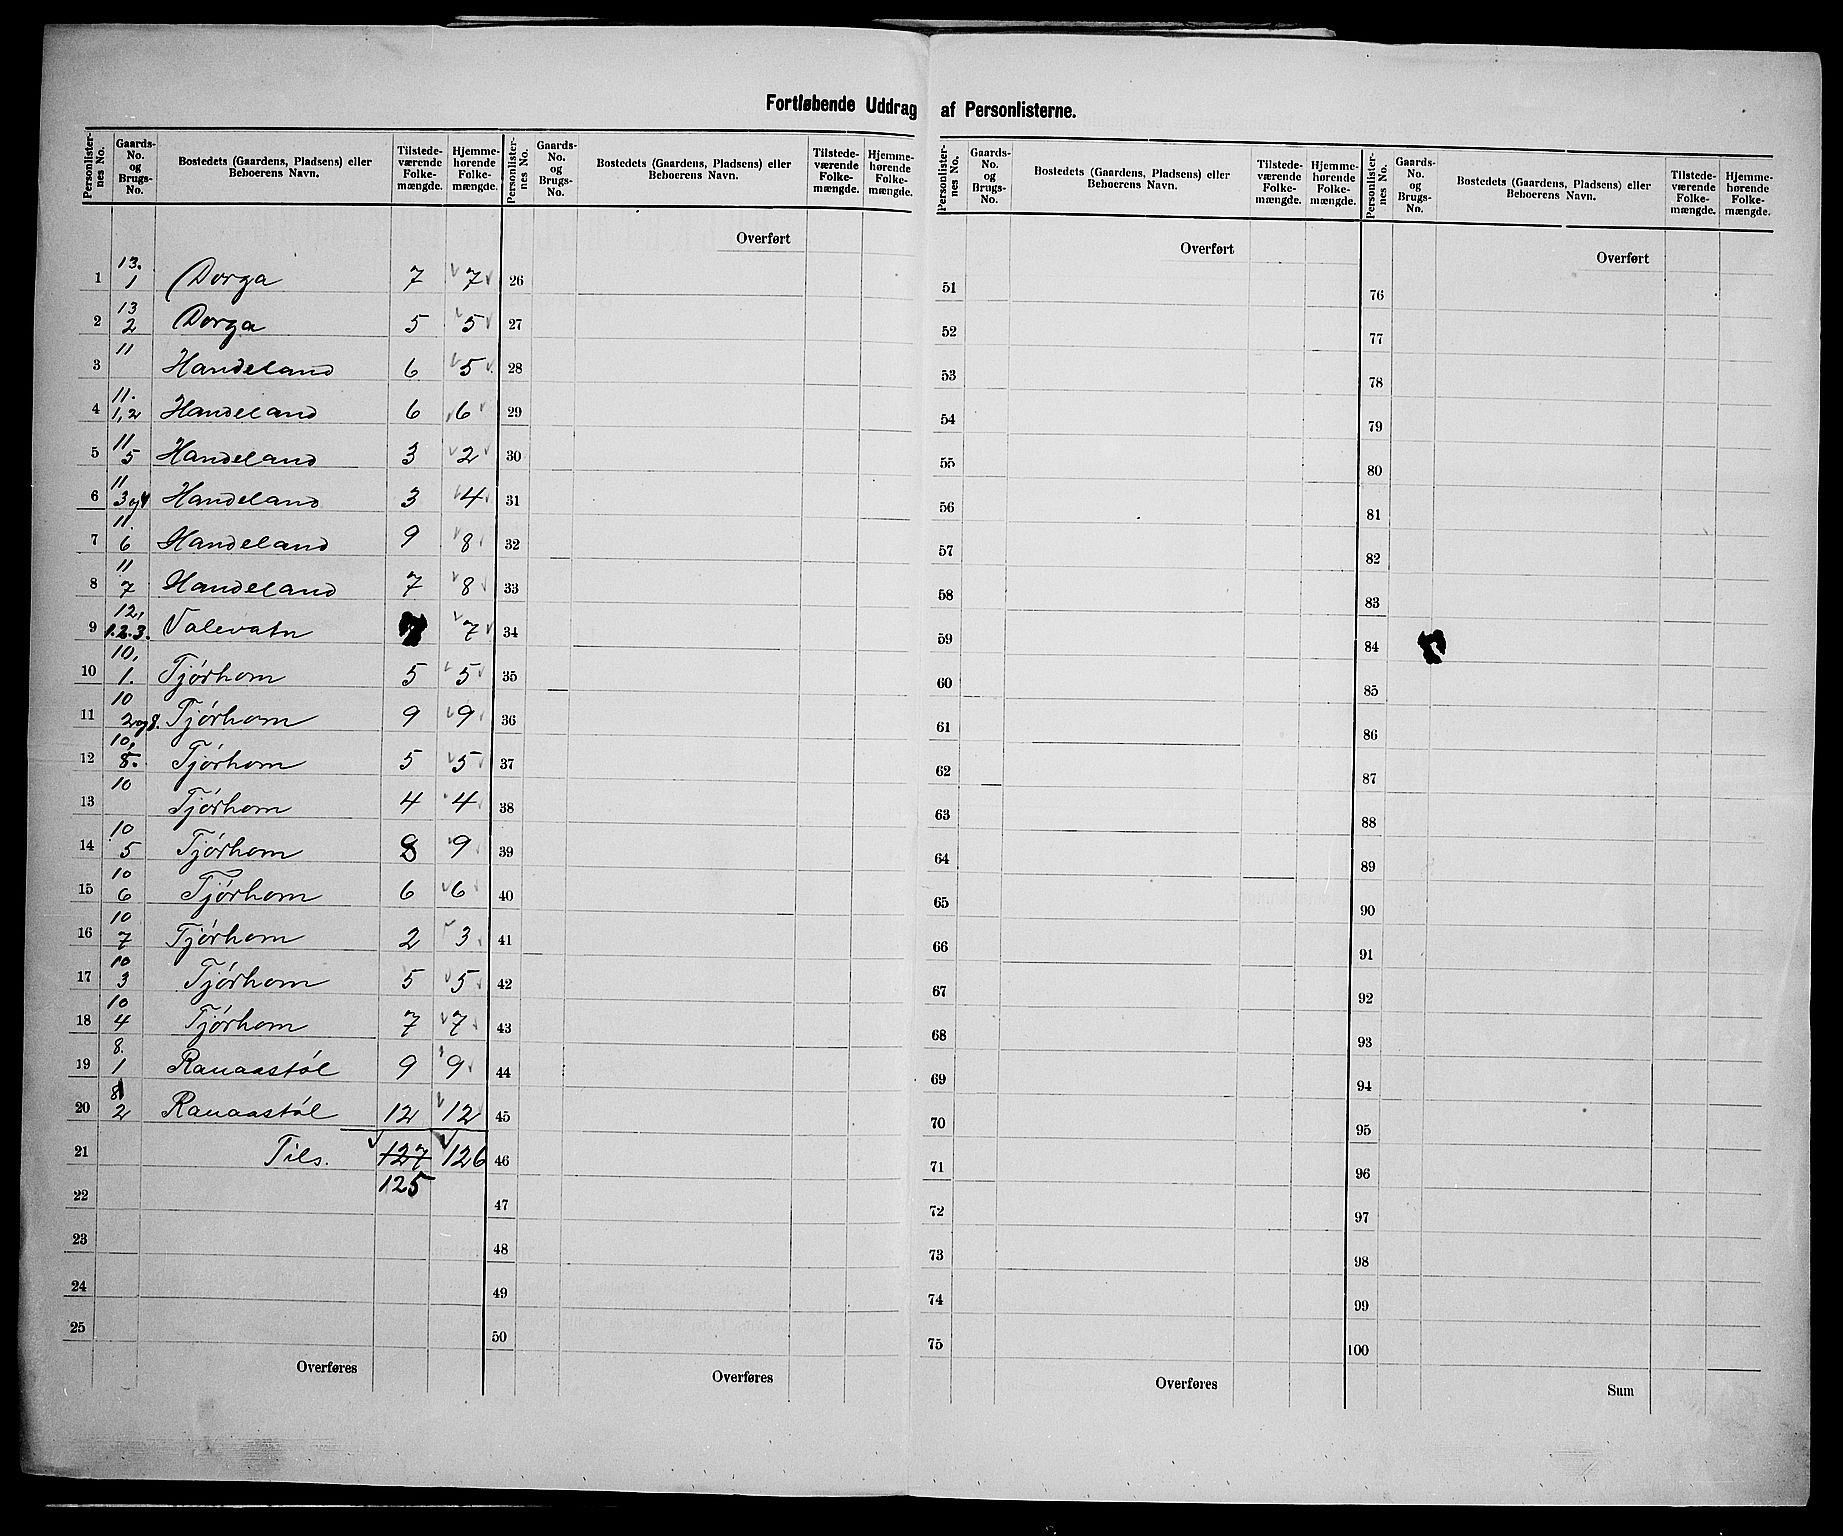 Fortløbende Uddrag af Personlisterne.
Personlisternes No. Gaards-No. og Brugs-No. Bostedets (Gaardens, Pladsens) eller Beboerens Navn. Tilstedeværende Folkemængde. Hjemmehørende Folkemængde.
Personlisternes No. Gaards-No. og Brugs-No. Bostedets (Gaardens, Pladsens) eller Beboerens Navn. Tilstedeværende Folkemængde. Hjemmehørende Folkemængde.
Personlisternes No. Gaards-No. og Brugs-No. Bostedets (Gaardens, Pladsens) eller Beboerens Navn. Tilstedeværende Folkemængde. Hjemmehørende Folkemængde.
Personlisternes No. Gaards-No. og Brugs-No. Bostedets (Gaardens, Pladsens) eller Beboerens Navn. Tilstedeværende Folkemængde. Hjemmehørende Folkemængde.
Overført Overført Overført
1 13. 1 Dorga 7 7 26 51 76
2 13 2 Dorga 5 5 27 52 77
3 11 Handeland 6 5 28 53 78
4 11. 1,2 Handeland 6 6 29 54 79
5 11 5 Handeland 3 2 30 55 80
6 11 3og4 Handeland 3 4 31 56 81
7 11 6 Handeland 9 8 32 57 82
8 11 7 Handeland 7 8 33 58 83
9 12, 1.2.3. Valevatn 7 7 34 59 84
10 10, 1. Tjórhom 5 5 35 60 85
11 10 2og8. Tjórhom 9 9 36 61 86
12 10, 8. Tjórhom 5 5 37 62 87
13 10 Tjórhom 4 4 38 63 88
14 10 5 Tjórhom 8 9 39 64 89
15 10 6 Tjórhom 6 6 40 65 90
16 10 7 Tjórhom 2 3 41 66 91
17 10 3 Tjórhom 5 5 42 67 92
18 10 4 Tjórhom 7 7 43 68 93
19 8. 1 Rauaastól 9 9 44 69 94
20 8 2 Rauaastól 12 12 45 70 95
21 Tils. 127 126 46 71 96
22 125 47 72 97
23 48 73 98
24 49 74 99
25 50 75 100
Overføres Overføres Overføres Sum